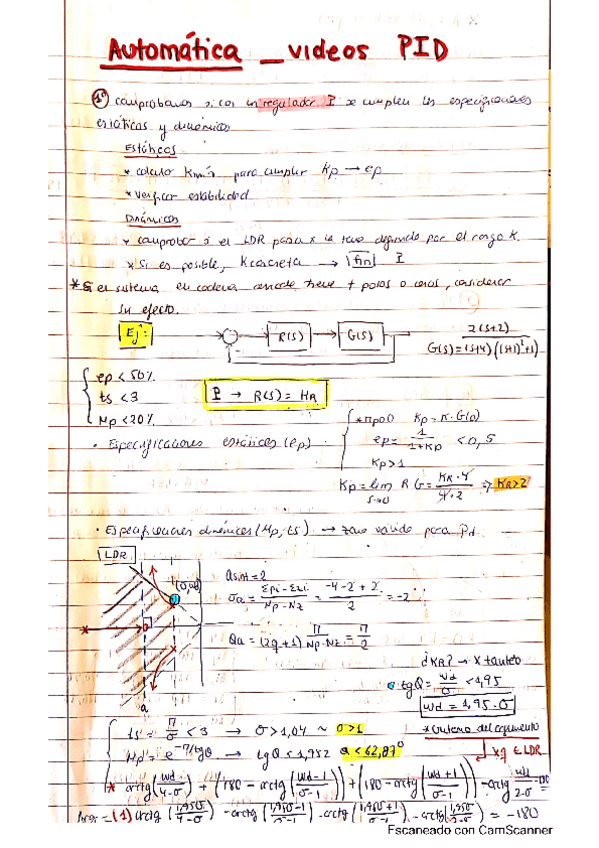 Automática _ videos PID
1º comprobamos si con un regulador P se cumplen las especificaciones
estáticas y dinámicas
Estáticas
* calculo Kmín para cumplir Kp → ep
* verificar estabilidad
Dinámicas
* comprobar si el LDR pasa x la zona definida por el rango K.
* Si es posible, K concreta → fin P
* Si el sistema en cadena tiene + polos o ceros, considerar
su efecto.
Ej:
R(s) G(s)
G(s) = 2(s+2) / (s+4)((s+1)²+1)
ep < 50%
ts < 3
Mp < 20%
P → R(s) = KR
* tipo 0 Kp = K·G(0)
ep = 1/(1+Kp) < 0,5
Kp > 1
· Especificaciones estáticas (ep)
Kp = lim s→0 R G = KR·4 / 4·2 ⇒ KR > 2
· Especificaciones dinámicas (Mp, ts) → zona válida para Pd.
LDR
(σ, ωd)
Asint = 2
σa = Σpi - Σzi / Np - Nz = -4-2+2 / 2 = -2
θa = (2q+1) π / Np-Nz = π/2
a
¿KR? → x tanteo
tgθ = ωd/σ < 1,95
ωd = 1,95·σ
ts = π/σ < 3 → σ > 1,04 ~ σ > 1
Mp = e^-π/tgθ → tgθ < 1,952 θ < 62,87º
* Criterio del argumento
xq ∈ LDR
* arctg(ωd/4-σ) + (180 - arctg(ωd-1/σ-1)) + (180 - arctg(ωd+1/σ-1)) - arctg ωd/2-σ
(1) arctg(1,95σ/4-σ) - arctg(1,95σ-1/σ-1) - arctg(1,95σ+1/σ-1) - arctg(1,95σ/2-σ) = -180
Escaneado con CamScanner